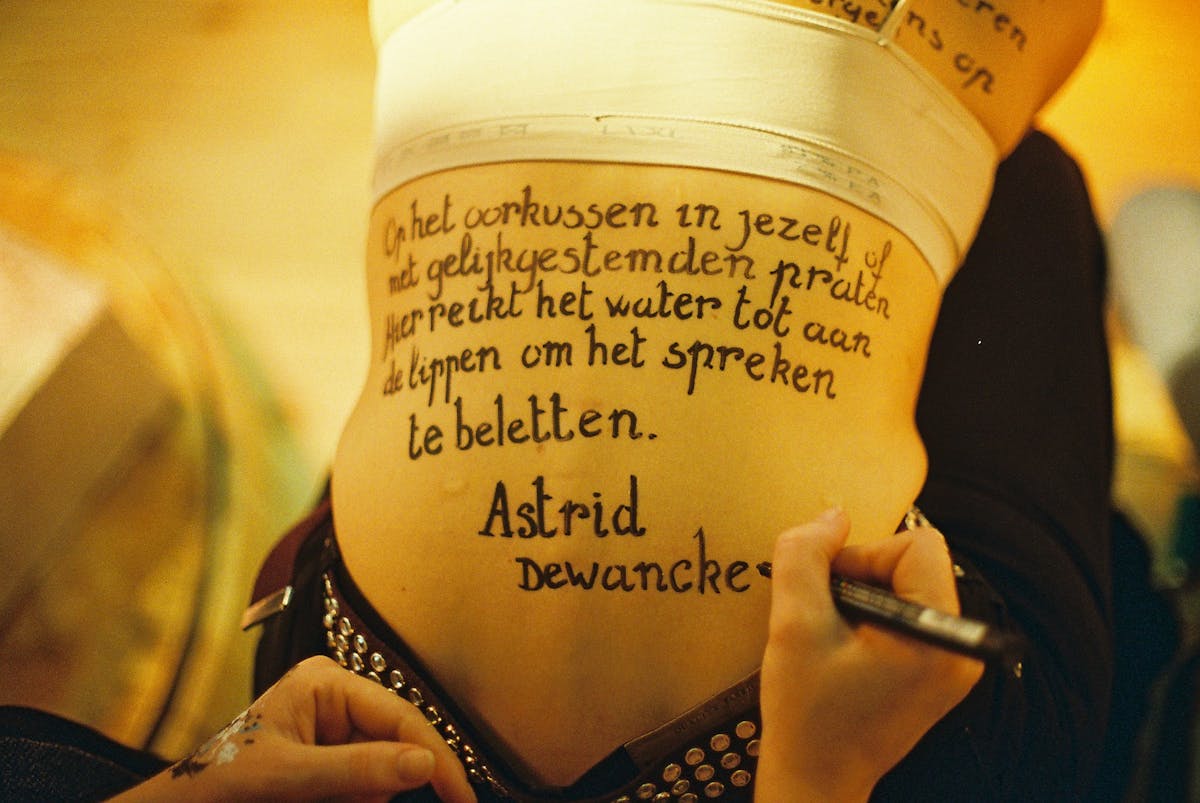 eren
ens op
Op het oorkussen in jezelf of
met gelijkgestemden praten
Hier reikt het water tot aan
de lippen om het spreken
te beletten.
Astrid
Dewancke